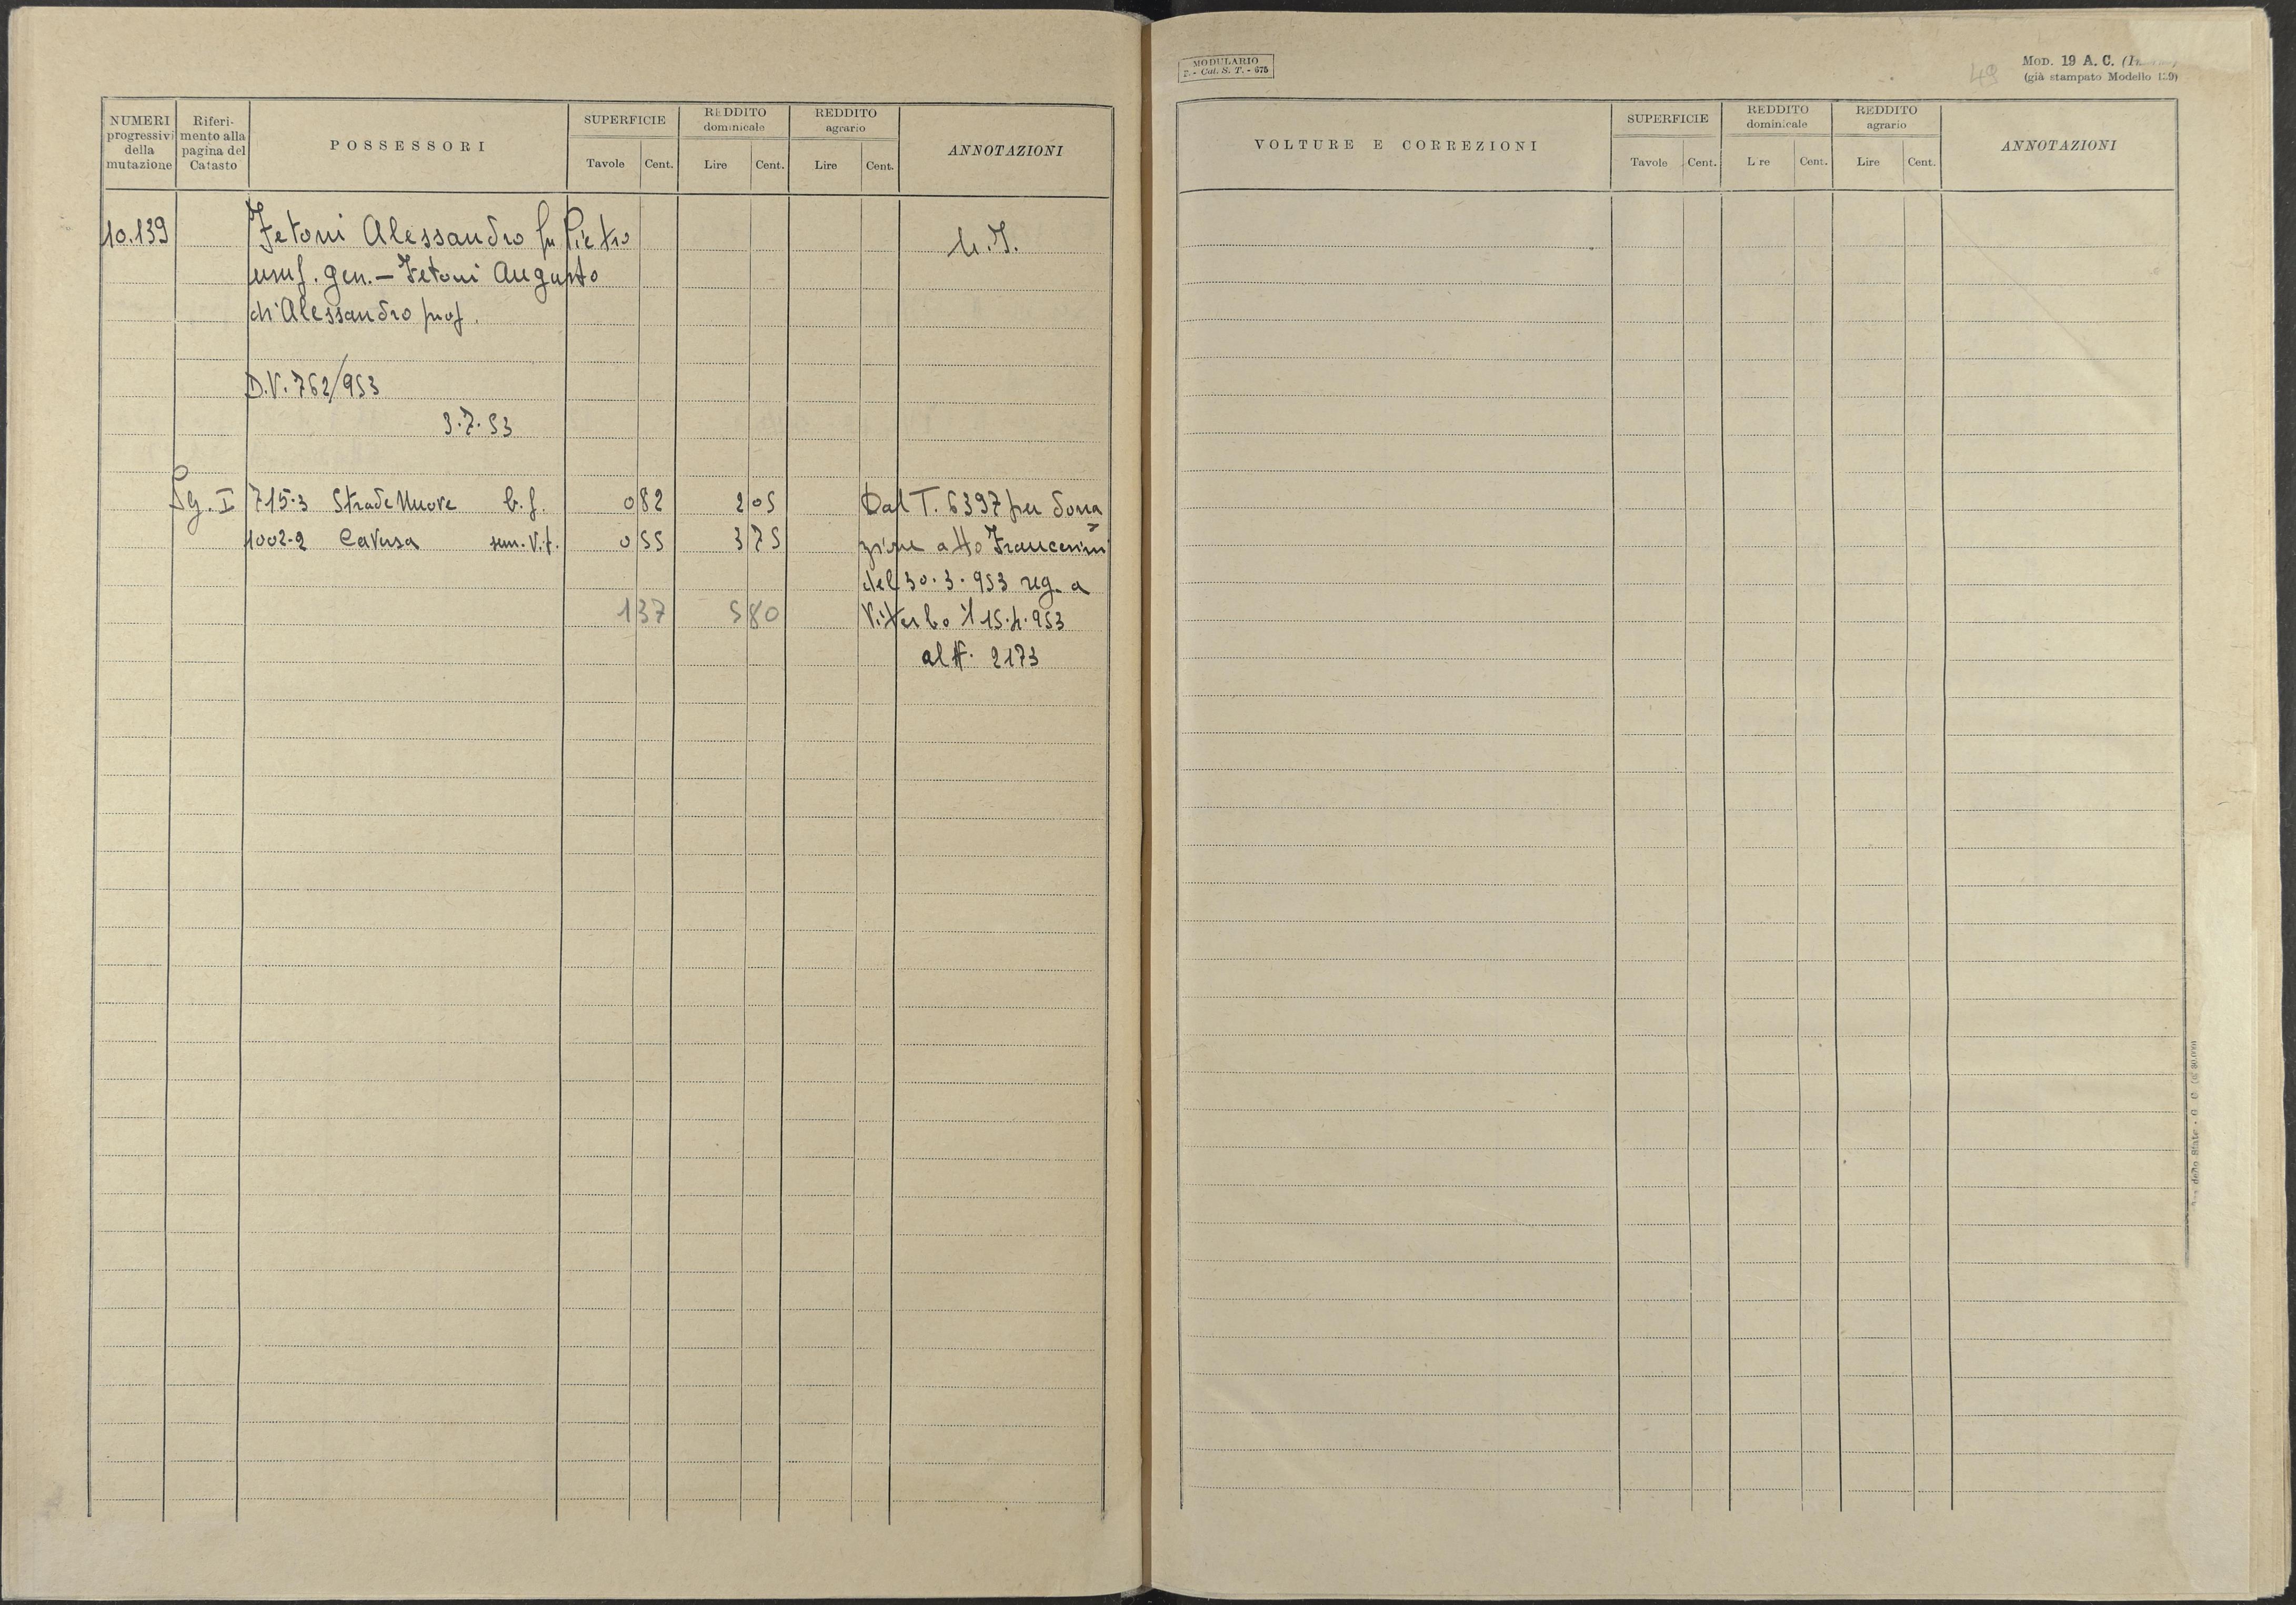 NUMERI progressivi della mutazione
Riferimento alla pagina del Catasto
POSSESSORI
SUPERFICIE
Tavole Cent.
REDDITO dominicale
Lire Cent.
REDDITO agrario
Lire Cent.
ANNOTAZIONI
10.139 Fetoni Alessandro fu Pietro
usuf. gen. – Fetoni Augusto
di Alessandro prop.
D.V. 762/953
3.7.53
Sg. I 715-3 Strade Nuove b.f. 0 82 2 05 Dal T. 6397 per dona
1002-2 Cavusa sem. Vit. 0 55 3 75 zione atto Francesini
del 30.3.953 reg. a
1 37 5 80 Viterbo il 15.4.953
al N. 2173
MODULARIO
F. - Cat. S. T. - 675
49
MOD. 19 A. C.
(già stampato Modello 129)
VOLTURE E CORREZIONI
SUPERFICIE
Tavole Cent.
REDDITO dominicale
L re Cent.
REDDITO agrario
Lire Cent.
ANNOTAZIONI
dello Stato